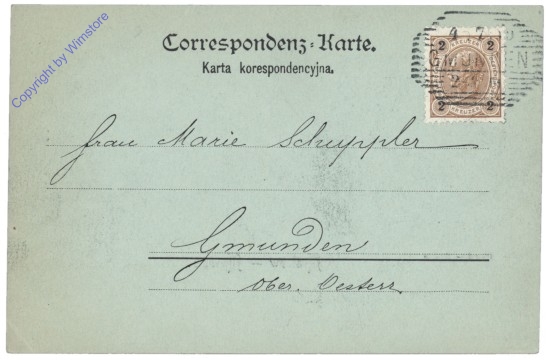 Copyright by Wimstore
Correspondenz-Karte.
Karta korespondencyjna.
2 KREUZER 2
GMUNDEN
2 KREUZER 2
Frau Marie Schuppler
Gmunden
Ober. Oesterr.